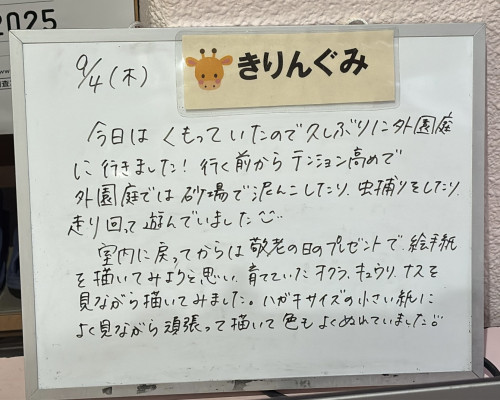 2025
きりんぐみ
9/4(木)
今日は くもっていたので久しぶりに外園庭
に行きました！行く前から テンション高めで
外園庭では 砂場で泥んこしたり、虫捕りをしたり、
走り回って遊んでいました
室内に戻ってからは敬老の日のプレゼントで、絵手紙
を描いてみようと思い、育てていたオクラ、キュウリ、ナスを
見ながら描いてみました。ハガキサイズの小さい紙に
よく見ながら頑張って描いて色もよくぬれていました。